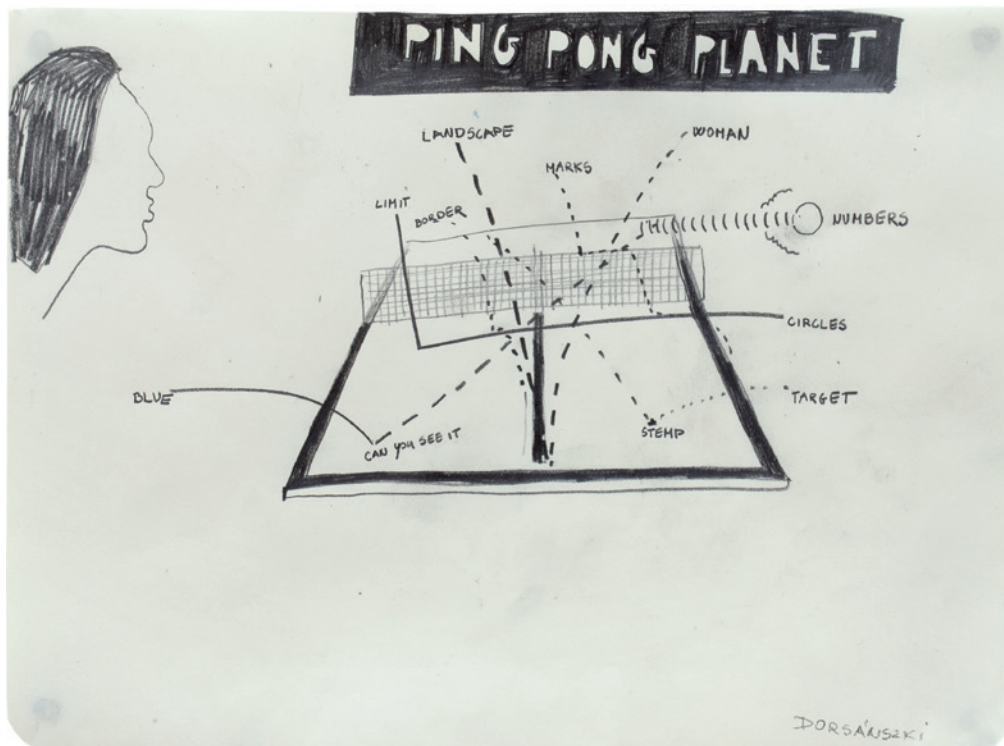 PING PONG PLANET
LANDSCAPE
WOMAN
MARKS
LIMIT
BORDER
NUMBERS
CIRCLES
BLUE
TARGET
CAN YOU SEE IT
STEMP
DORSÁNSZKI